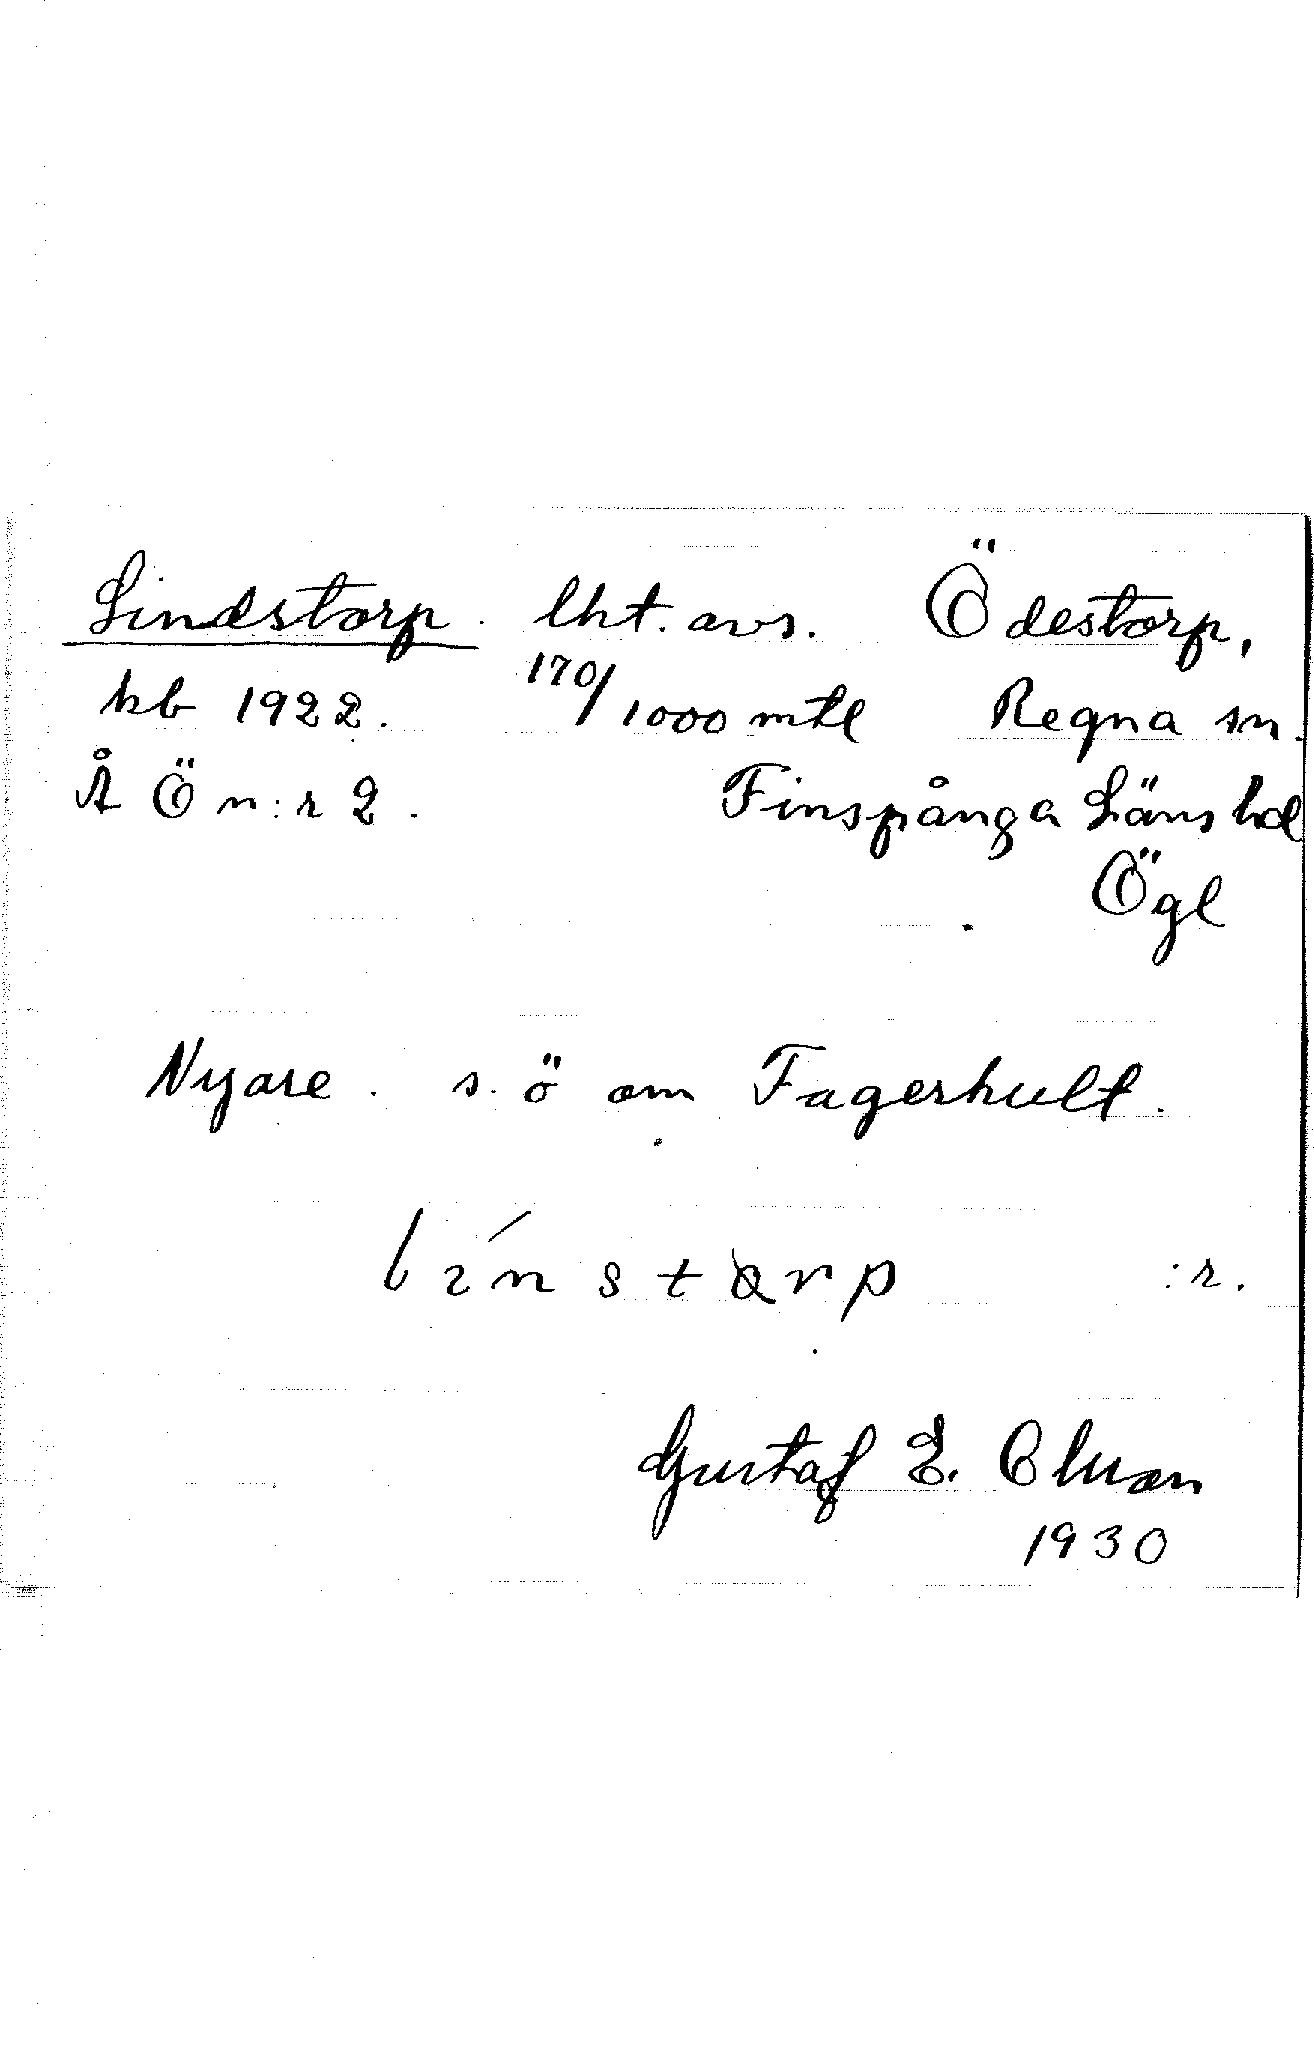 Lindstorp. lht. avs. Ödestorp,
kb 1922. 170/1000 mtl Regna sn.
Å Ö n:r 2. Finspånga Läns hd
Ögl
Nyare. s. ö om Fagerhult.
linstɑrp :r.
Gustaf E.
1930